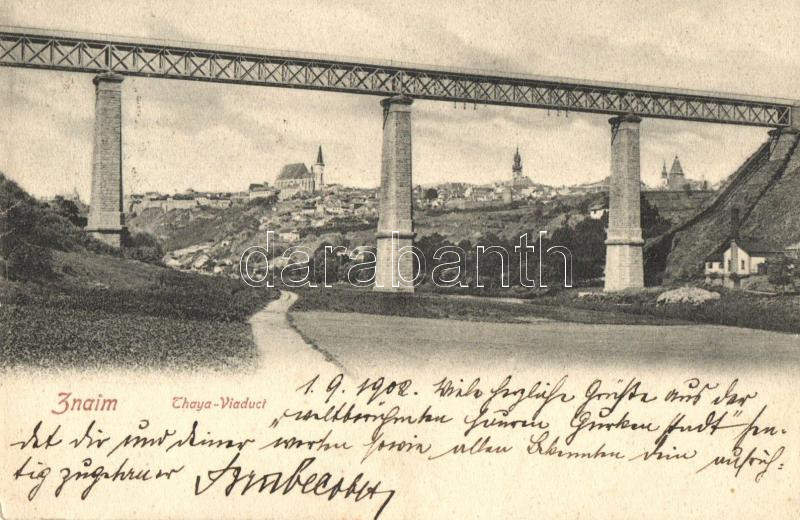 darabanth
Znaim
Thaya-Viaduct
1. 9. 1902. Viele herzliche Grüße aus der
"weltberühmten sauren Gurken stadt" sen-
det dir und deiner werten sowie allen Bekannten dein aufrich-
tig zugethaner